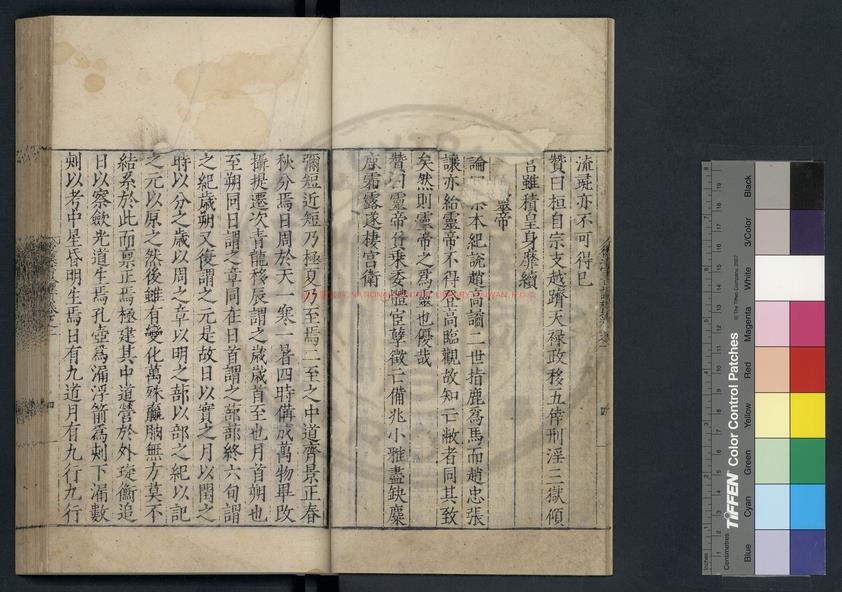 流彘亦不可得已
贊曰桓自宗支越躋天祿政移五倖刑淫三獄傾
宮雖積皇身靡續
靈帝
論 本紀說趙高譎二世指鹿爲馬而趙忠張
讓亦紿靈帝不得登高臨觀故知亡敝者同其致
矣然則靈帝之爲靈也優哉
贊曰靈帝負乘委體宦孽徵亡備兆小雅盡缺麋
鹿霜露遂棲宮衛
彌短近短乃極夏乃至焉二至之中道齊景正春
秋分焉日周於天一寒一暑四時備成萬物畢改
攝提遷次青龍移辰謂之歲歲首至也月首朔也
至朔同日謂之章同在日首謂之蔀蔀終六旬謂
之紀歲朔又復謂之元是故日以實之月以閏之
時以分之歲以周之章以明之蔀以部之紀以記
之元以原之然後雖有變化萬殊贏朒無方莫不
結系於此而稟正焉極建其中道營於外琁衡追
日以察斂光道生焉孔壺爲漏浮箭爲刻下漏數
刻以考中星昏明生焉日有九道月有九行九行
四
四
TIFFEN Color Control Patches
© The Tiffen Company, 2007
Centimetres
Inches
Blue
Cyan
Green
Yellow
Red
Magenta
White
3/Color
Black